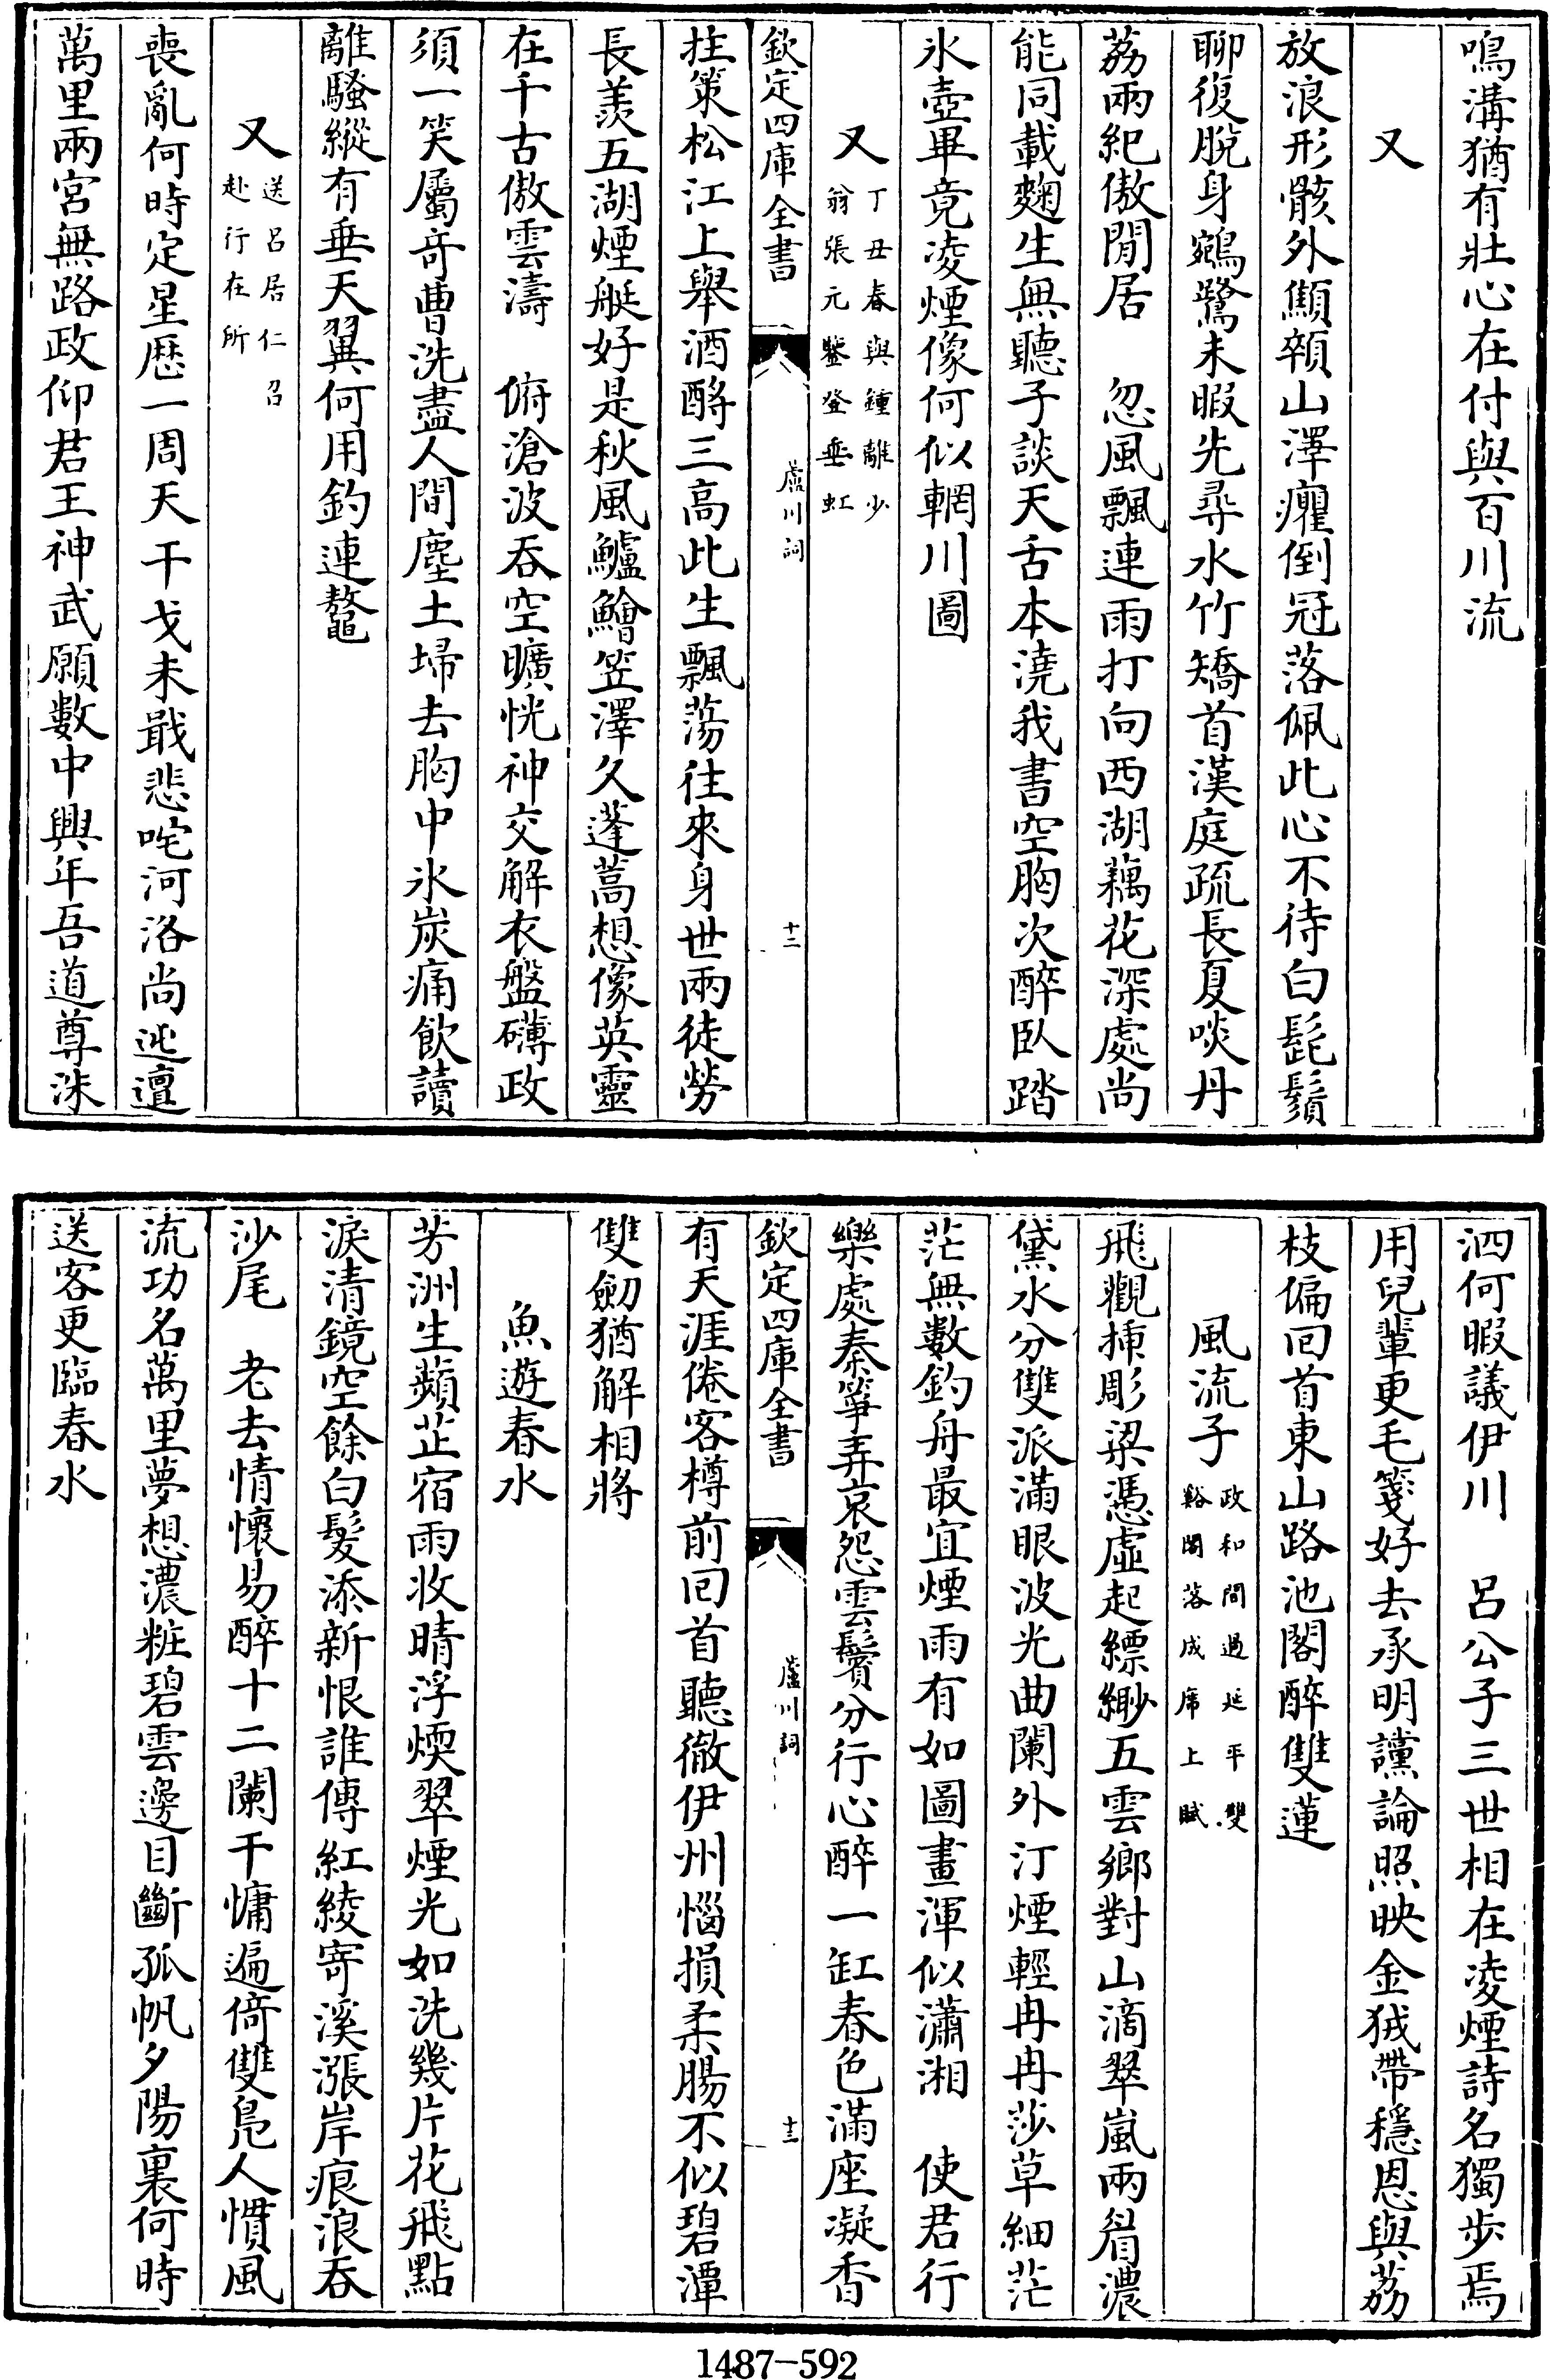 鳴溝猶有壯心在付與百川流
又
放浪形骸外顦顇山澤癯倒冠落佩此心不待白髭鬚
聊復脫身鵷鷺未暇先尋水竹矯首漢庭疏長夏啖丹
荔兩紀傲閒居　忽風飄連雨打向西湖藕花深處尚
能同載麴生無聽子談天舌本澆我書空胸次醉臥踏
氷壺畢竟凌煙像何似輞川圖
又丁丑春與鍾離少
翁張元鑒登垂虹
欽定四庫全書
蘆川詞
十二
拄策松江上舉酒酹三高此生飄蕩往來身世兩徒勞
長羨五湖煙艇好是秋風鱸鱠笠澤久蓬蒿想像英靈
在千古傲雲濤　俯滄波吞空曠恍神交解衣盤礴政
須一笑屬奇曹洗盡人間塵土埽去胸中氷炭痛飲讀
離騷縱有垂天翼何用釣連鼇
又送呂居仁召
赴行在所
喪亂何時定星厯一周天干戈未戢悲咤河洛尚迍邅
萬里兩宮無路政仰君王神武願數中興年吾道尊洙
泗何暇議伊川　呂公子三世相在凌煙詩名獨步焉
用兒輩更毛箋好去承明讜論照映金狨帶穩恩與荔
枝偏囘首東山路池閣醉雙蓮
風流子政和間過延平雙
谿閣落成席上賦
飛觀插彫梁憑虛起縹緲五雲鄉對山滴翠嵐兩眉濃
黛水分雙派滿眼波光曲闌外汀煙輕冉冉莎草細茫
茫無數釣舟最宜煙雨有如圖畫渾似瀟湘　使君行
樂處秦箏弄哀怨雲鬟分行心醉一缸春色滿座凝香
欽定四庫全書
蘆川詞
十三
有天涯倦客樽前囘首聽徹伊州惱損柔腸不似碧潭
雙劒猶解相將
魚遊春水
芳洲生蘋芷宿雨收晴浮煗翠煙光如洗幾片花飛點
淚清鏡空餘白髮添新恨誰傳紅綾寄溪漲岸痕浪吞
沙尾　老去情懷易醉十二闌干慵遍倚雙鳧人慣風
流功名萬里夢想濃粧碧雲邊目斷孤帆夕陽裏何時
送客更臨春水
1487-592